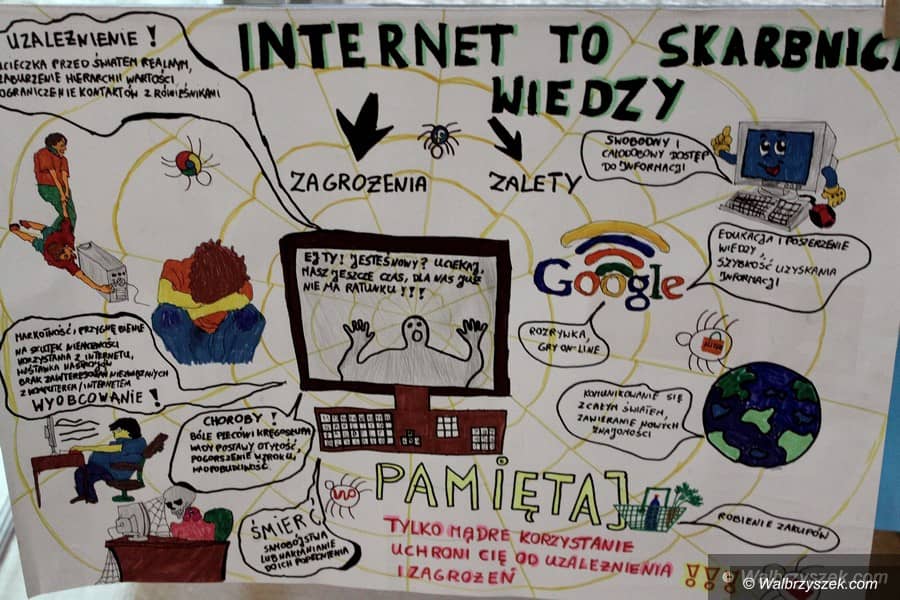 INTERNET TO SKARBNICA
WIEDZY
UZALEŻNIENIE!
UCIECZKA PRZED ŚWIATEM REALNYM,
ZABURZENIE HIERARCHII WARTOŚCI,
OGRANICZENIE KONTAKTÓW Z RÓWIEŚNIKAMI
ZAGROŻENIA
ZALETY
SWOBODNY I
CAŁODOBOWY DOSTĘP
DO INFORMACJI
EJ TY! JESTEŚ NOWY? UCIEKAJ,
MASZ JESZCZE CZAS, DLA NAS JUŻ
NIE MA RATUNKU!!!
Google
EDUKACJA I POSZERZENIE
WIEDZY,
SZYBKOŚĆ UZYSKANIA
INFORMACJI
ROZRYWKA,
GRY ON-LINE
MARKOTNOŚĆ, PRZYGNĘBIENIE
NA SKUTEK NIEMOŻNOŚCI
KORZYSTANIA Z INTERNETU,
HUŚTAWKA NASTROJÓW
BRAK ZAINTERESOWAŃ NIEZWIĄZANYCH
Z KOMPUTEREM/INTERNETEM
WYOBCOWANIE!
KOMUNIKOWANIE SIĘ
Z CAŁYM ŚWIATEM,
ZAWIERANIE NOWYCH
ZNAJOMOŚCI
CHOROBY!
BÓLE PLECÓW I KRĘGOSŁUPA
WADY POSTAWY OTYŁOŚĆ,
POGORSZENIE WZROKU,
NADPOBUDLIWOŚĆ
ŚMIERĆ
SAMOBÓJSTWA
LUB NAKŁANIANIE
DO ICH POPEŁNIENIA
PAMIĘTAJ
TYLKO MĄDRE KORZYSTANIE
UCHRONI CIĘ OD UZALEŻNIENIA
I ZAGROŻEŃ !!!
ROBIENIE ZAKUPÓW
Walbrzyszek.com
© Walbrzyszek.com